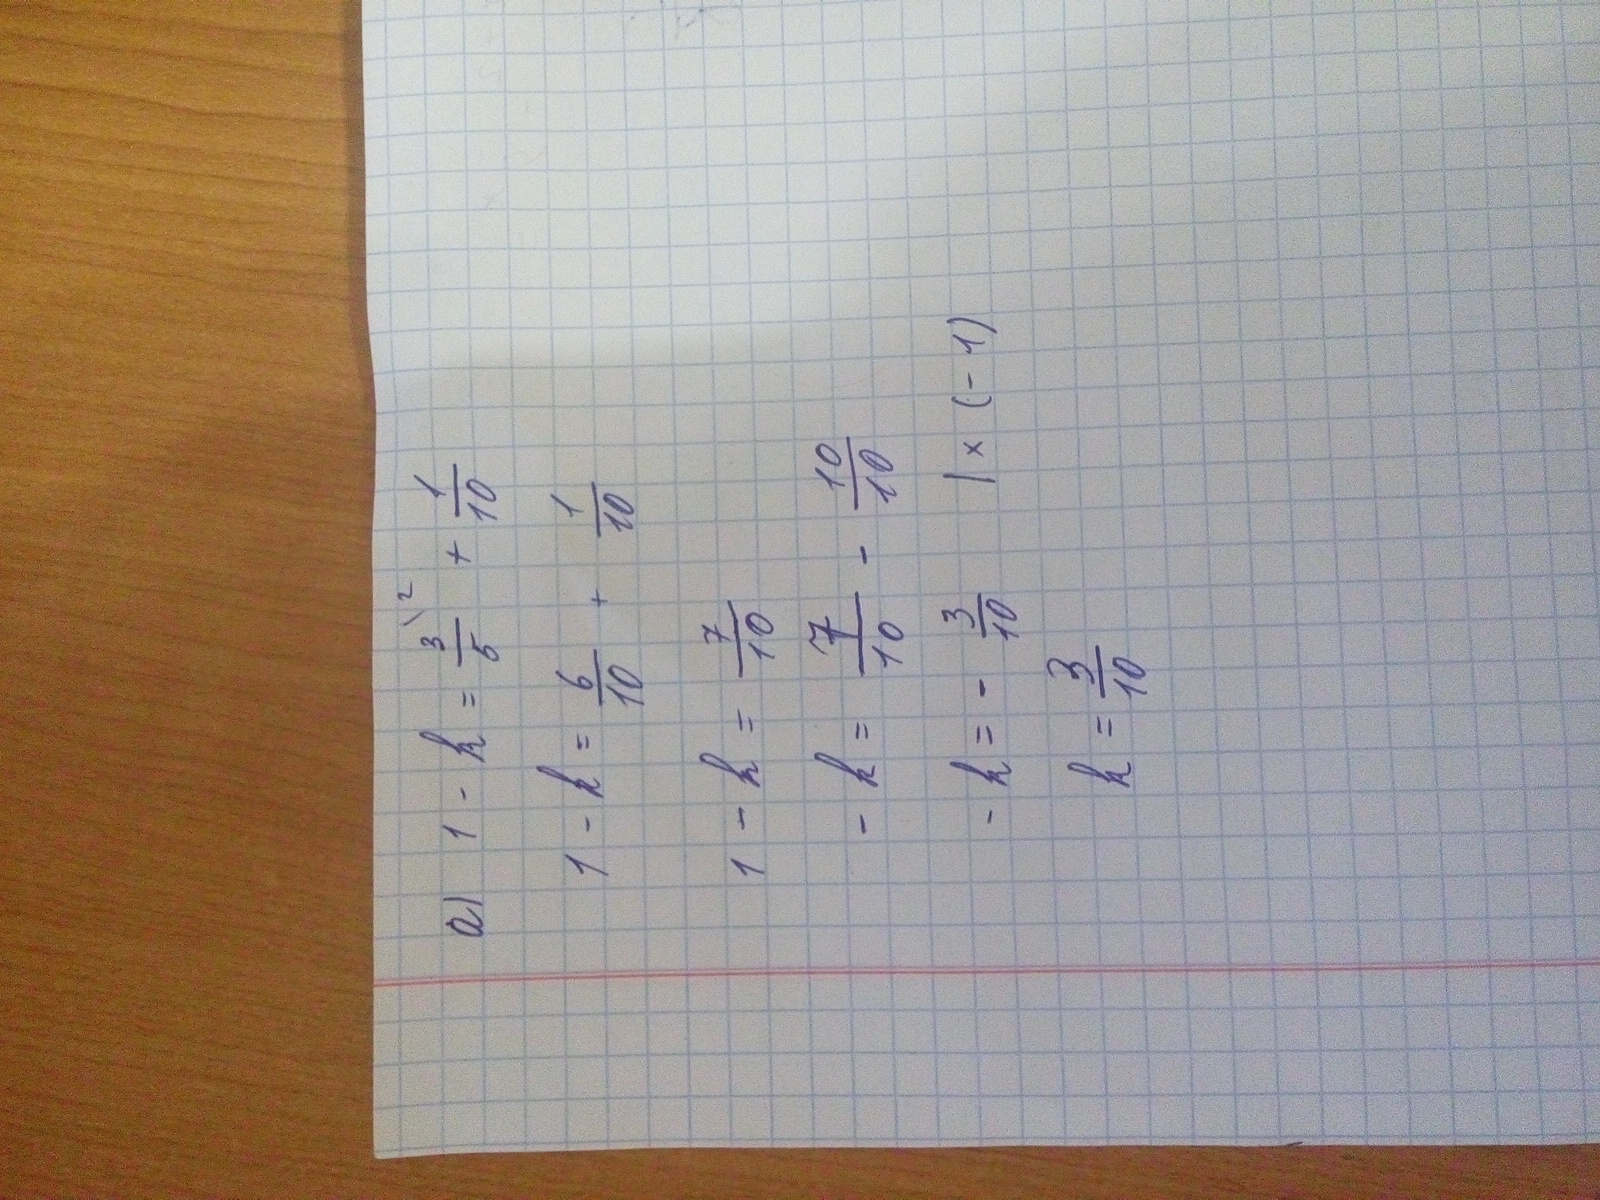 а) 1 - k = 3/5 \2 + 1/10
1 - k = 6/10 + 1/10
1 - k = 7/10
- k = 7/10 - 10/10
- k = - 3/10 | × (- 1)
k = 3/10